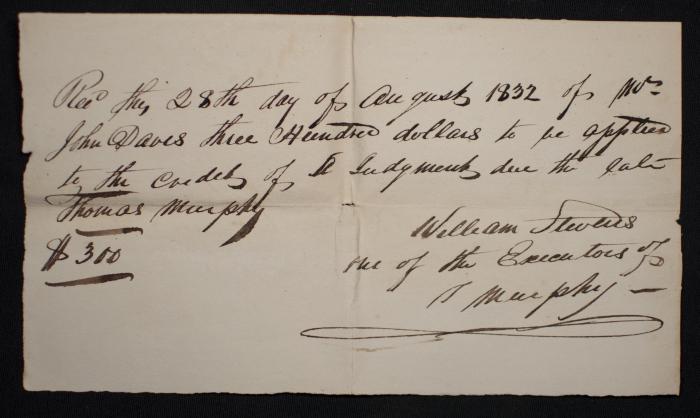 Recd this 28th day of August 1832 of Mr
John Daves three Hundred dollars to be applied
to the credit of a Judgment due the late
Thomas Murphy
$ 300
William Stevens
one of the Executors of
T Murphy